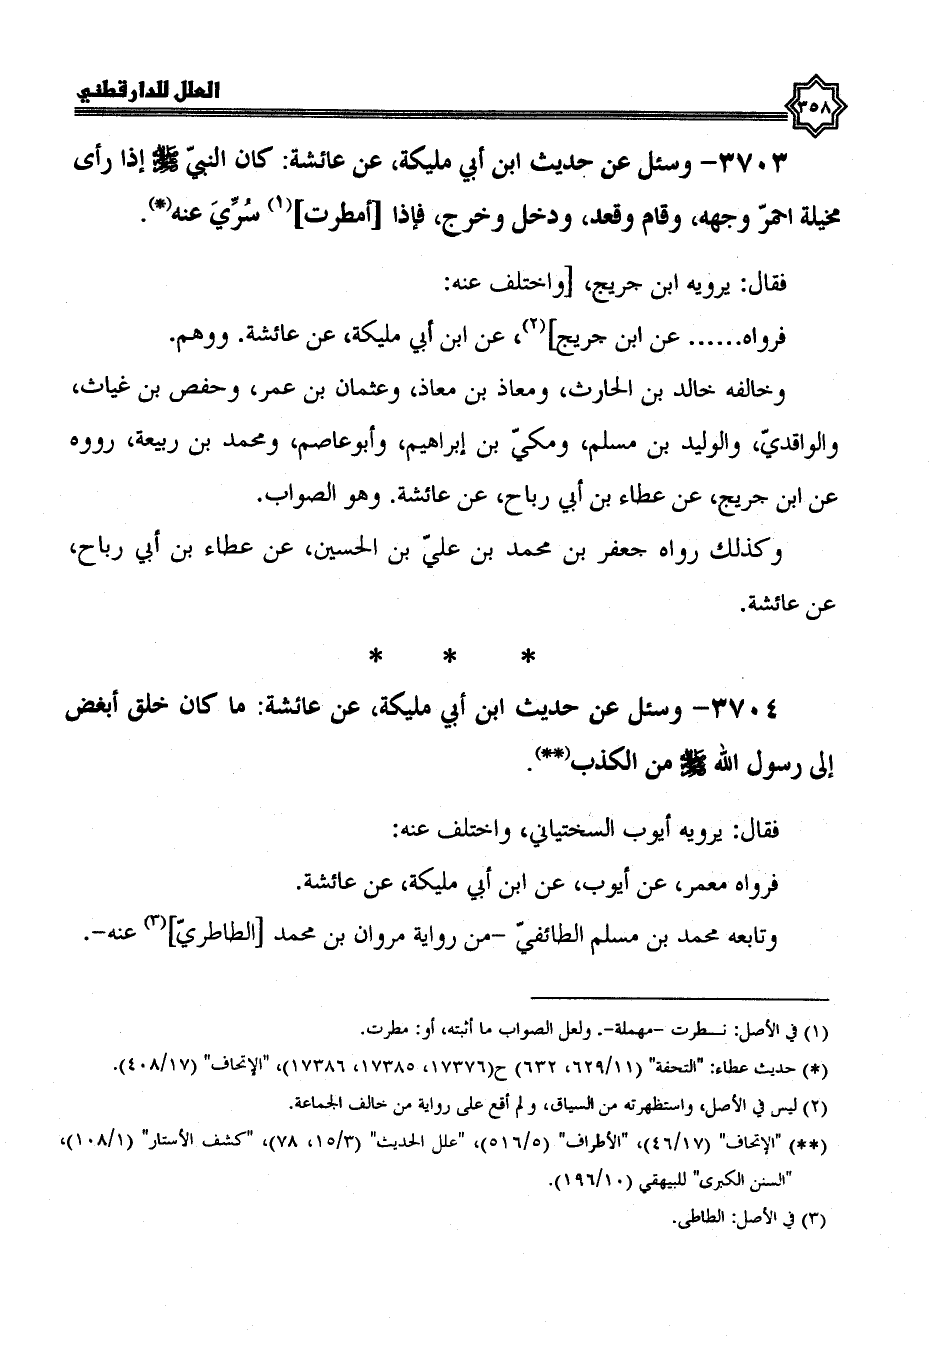 العلل للدارقطني
٣٥٨
٣٧٠٣- وسئل عن حديث ابن أبي مليكة، عن عائشة: كان النبيّ ﷺ إذا رأى
مخيلة احمرّ وجهه، وقام وقعد، ودخل وخرج، فإذا [أمطرت](١) سُرِّيَ عنه(*).
فقال: يرويه ابن جريج، [واختلف عنه:
فرواه...... عن ابن جريج](٢)، عن ابن أبي مليكة، عن عائشة. ووهم.
وخالفه خالد بن الحارث، ومعاذ بن معاذ، وعثمان بن عمر، وحفص بن غياث،
والواقديّ، والوليد بن مسلم، ومكيّ بن إبراهيم، وأبوعاصم، ومحمد بن ربيعة، رووه
عن ابن جريج، عن عطاء بن أبي رباح، عن عائشة. وهو الصواب.
وكذلك رواه جعفر بن محمد بن عليّ بن الحسين، عن عطاء بن أبي رباح،
عن عائشة.
* * *
٣٧٠٤- وسئل عن حديث ابن أبي مليكة، عن عائشة: ما كان خلق أبغض
إلى رسول الله ﷺ من الكذب(**).
فقال: يرويه أيوب السختياني، واختلف عنه:
فرواه معمر، عن أيوب، عن ابن أبي مليكة، عن عائشة.
وتابعه محمد بن مسلم الطائفيّ -من رواية مروان بن محمد [الطاطريّ](٣) عنه-.
(١) في الأصل: نـطرت -مهملة-. ولعل الصواب ما أثبته، أو: مطرت.
(*) حديث عطاء: "التحفة" (٦٢٩/١١، ٦٣٢) ح(١٧٣٧٦، ١٧٣٨٥، ١٧٣٨٦)، "الإتحاف" (٤٠٨/١٧).
(٢) ليس في الأصل، واستظهرته من السياق، ولم أقع على رواية من خالف الجماعة.
(**) "الإتحاف" (٤٦/١٧)، "الأطراف" (٥١٦/٥)، "علل الحديث" (١٥/٣، ٧٨)، "كشف الأستار" (١٠٨/١)،
"السنن الكبرى" للبيهقي (١٩٦/١٠).
(٣) في الأصل: الطاطى.